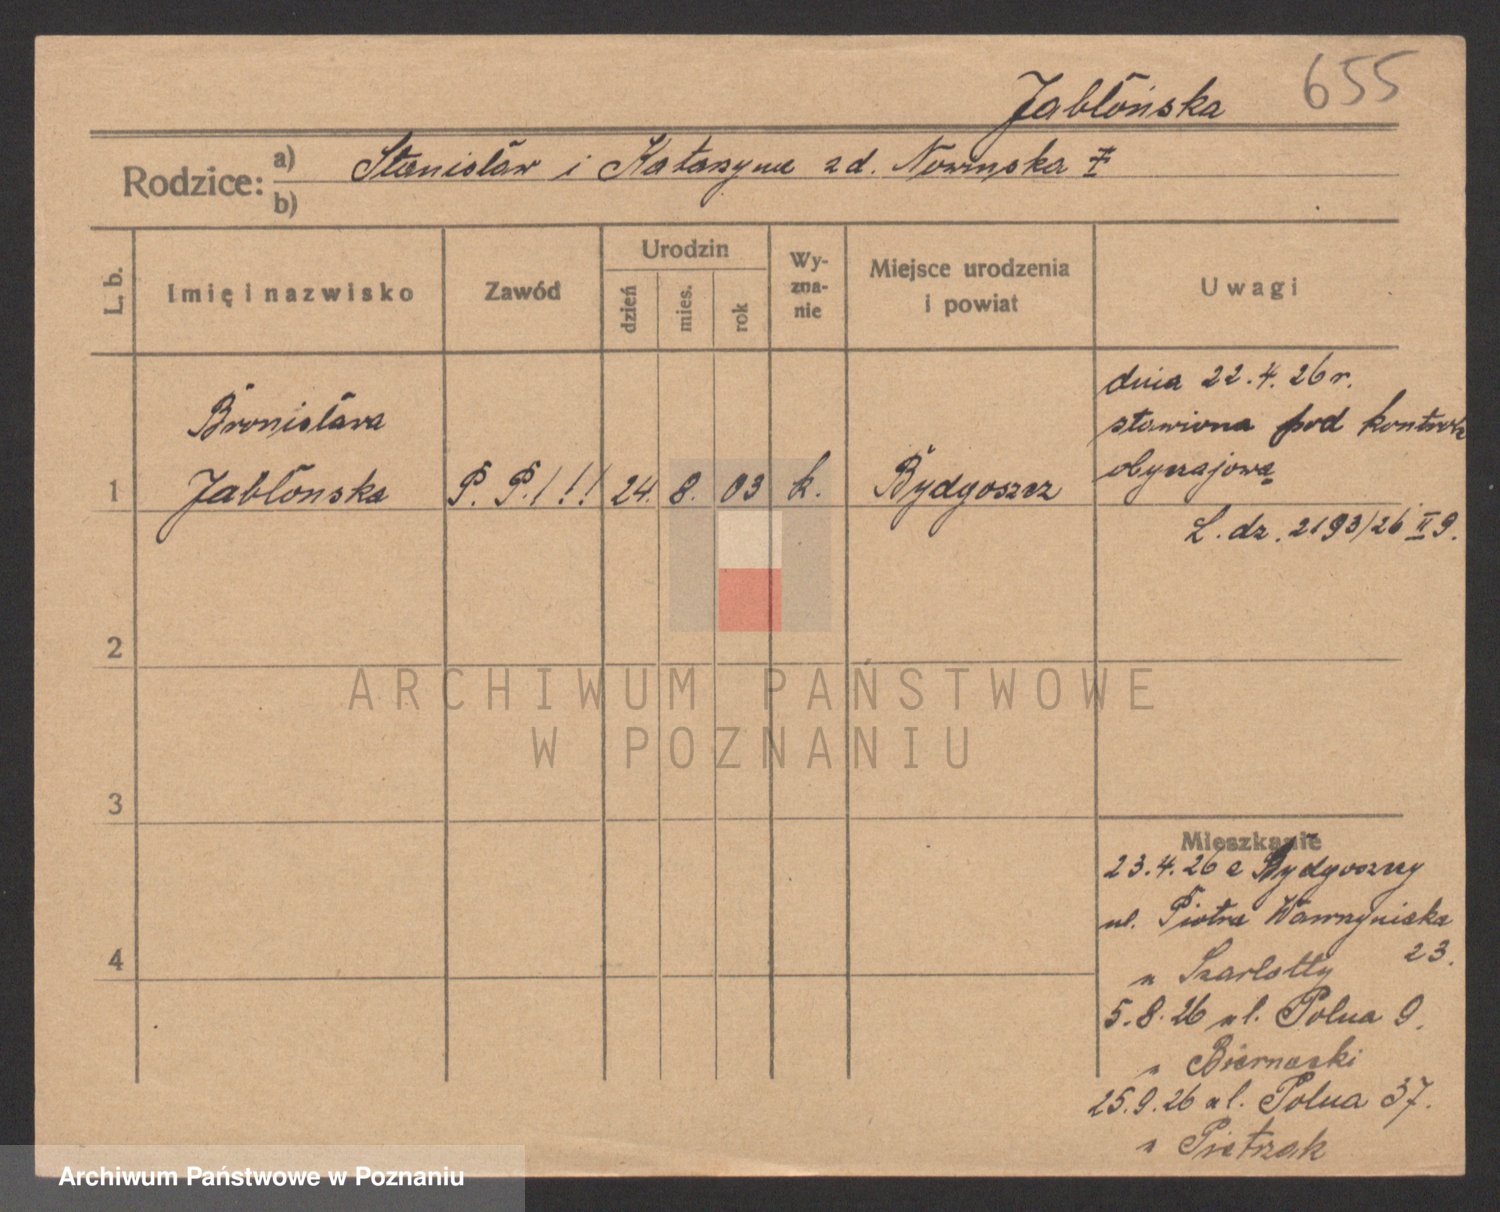 655
Jabłońska
Rodzice: a) Stanisław i Katarzyna zd. Nowinska
b)
L. b.
Imię i nazwisko
Zawód
Urodzin
dzień
mies.
rok
Wy-
zna-
nie
Miejsce urodzenia
i powiat
Uwagi
1
Bronisława
Jabłonska
P. P.!!!
24. 8. 03
k.
Bydgoszcz
dnia 22.4.26 r.
stawiona pod
obyczajową
L. dz. 2193/26 II 9.
2
3
4
Mieszkanie
23.4.26 z Bydgoszczy
ul. Piotra Wawrzyniaka
23.
u Szarlotty
5.8.26 ul. Polna 9.
u Biernacki
25.9.26 ul. Polna 37.
u Pietrzak
ARCHIWUM PAŃSTWOWE
W POZNANIU
Archiwum Państwowe w Poznaniu